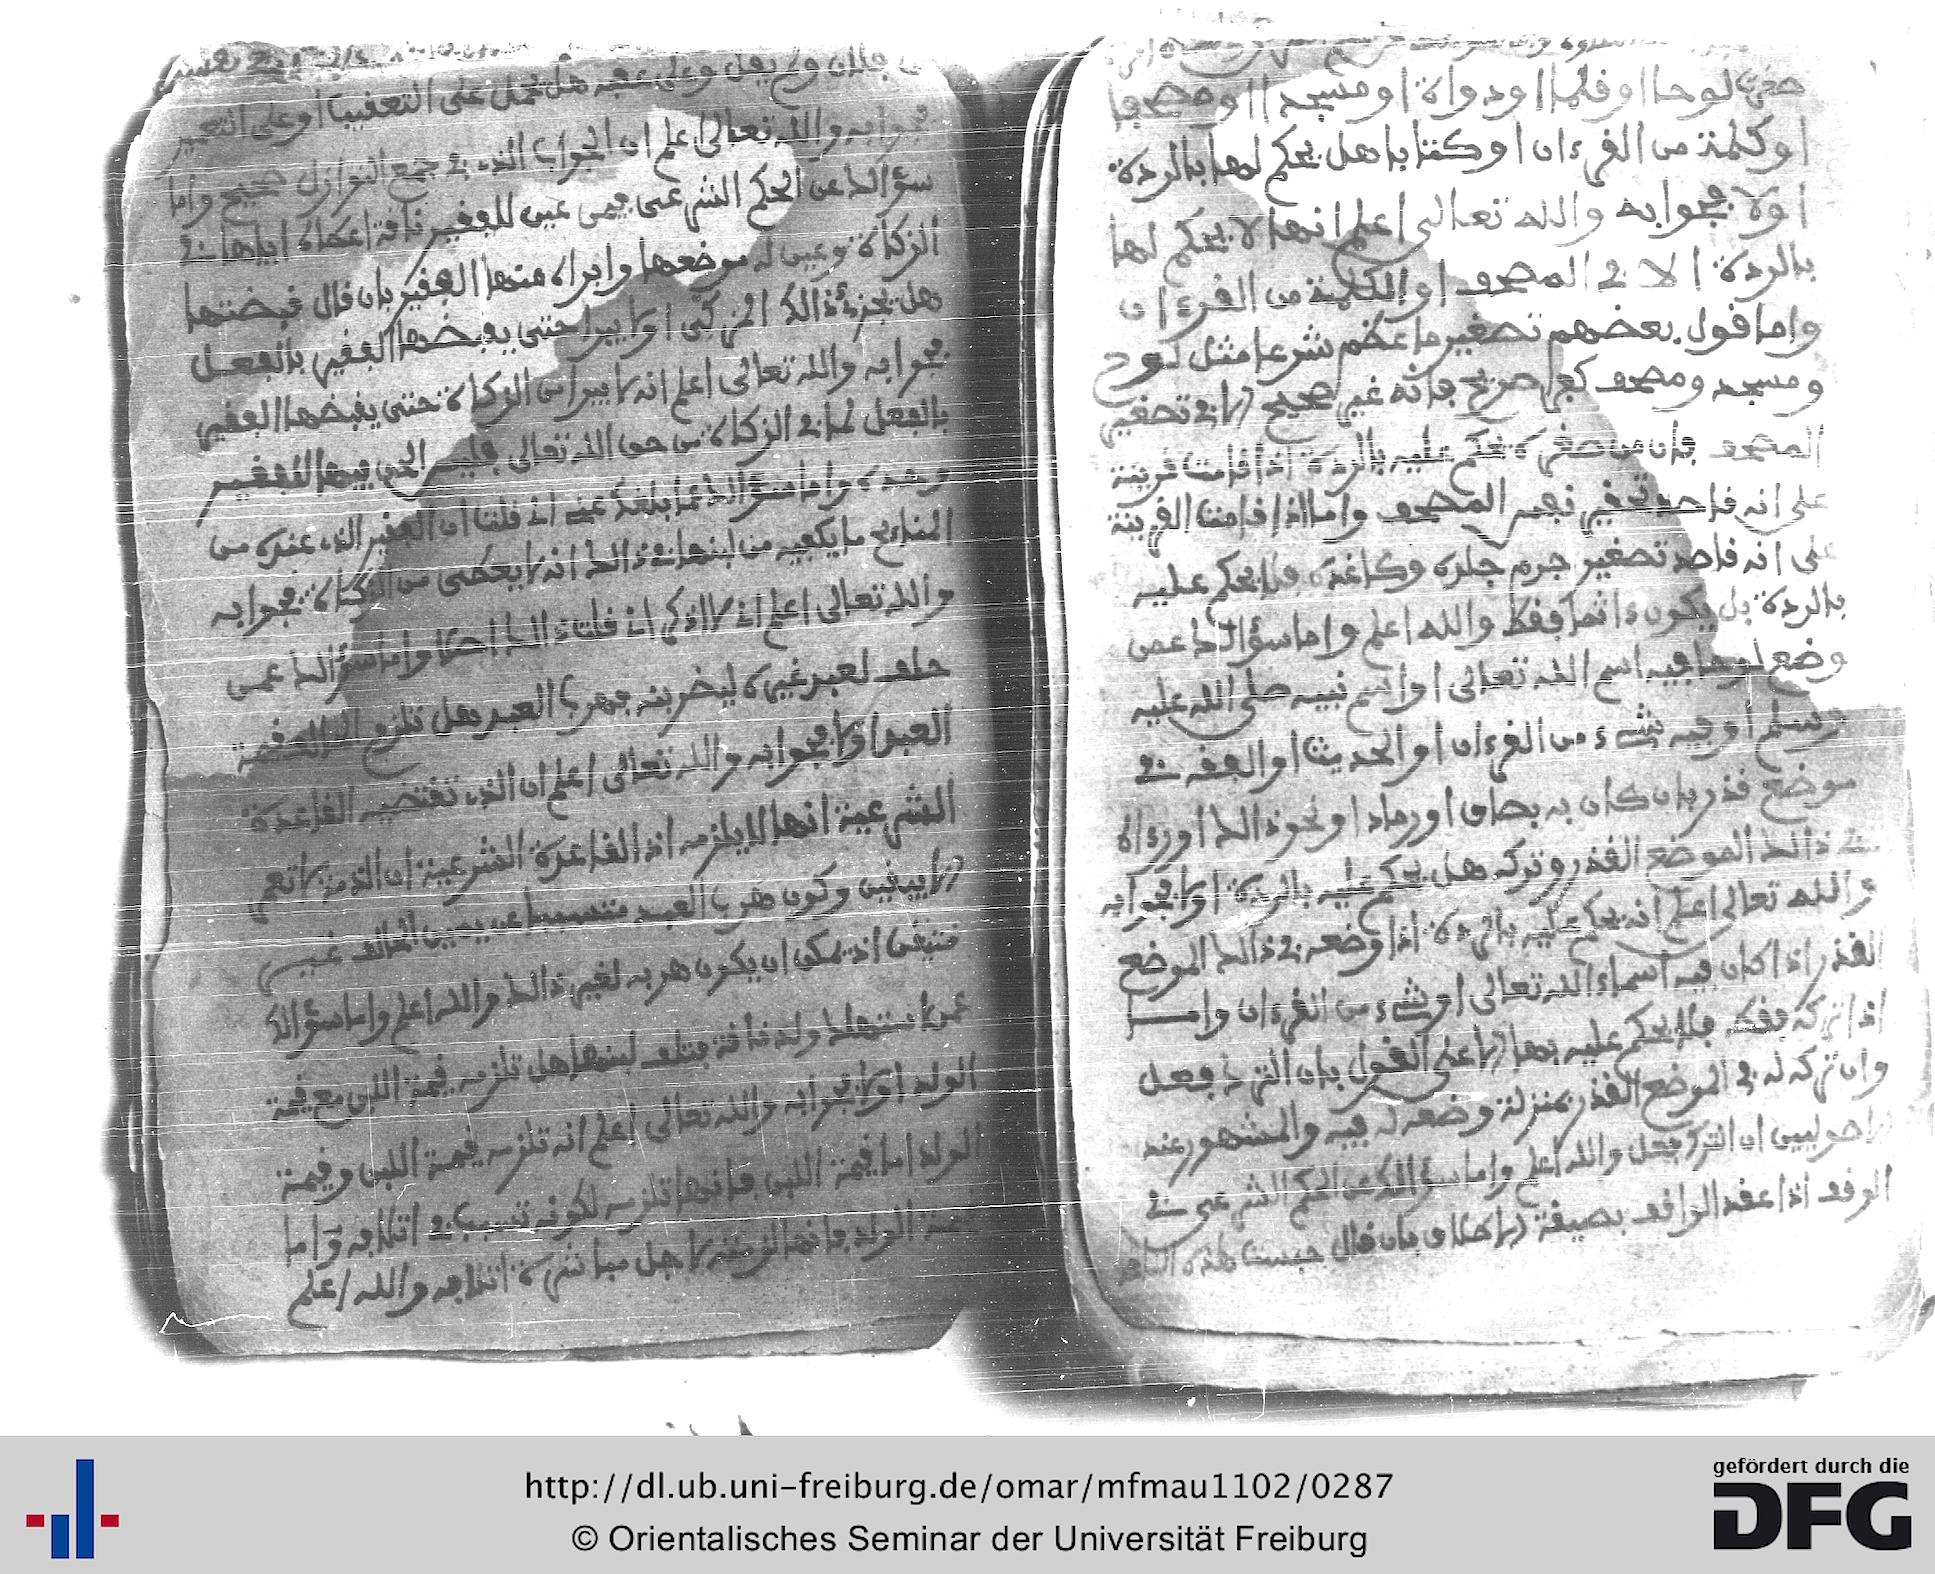 صغرت لوحا او قلما او دواة او مسجدا او مصحفا
او كلمة من القرءان او كتابا هل يحكم لها بالردة
او لا فجوابه والله تعالى اعلم انها لا يحكم لها
بالردة الا في المصحف او الكلمة من القرءان
واما قول بعضهم تصغير ما عظم شرعا مثل لوح
ومسجد ومصحف كفر صريح فانه غير صحيح الا في تصغير
المصحف فان من صغره يحكم عليه بالردة اذا قامت قرينة
على انه قاصد تحقير نفس المصحف واما اذا قامت القرينة
على انه قاصد تصغير جرم جلده وكاغده فلا يحكم عليه
بالردة بل يكون ءاثما فقط والله اعلم واما سؤالك عمن
وضع لوحا فيه اسم الله تعالى او اسم نبيه صلى الله عليه
وسلم او فيه شيء من القرءان او الحديث او الفقه في
موضع قذر بان كان به بصاق او رماد او نحو ذالك او رءاه
في ذالك الموضع القذر وتركه هل يحكم عليه بالردة او لا فجوابه
والله تعالى اعلم انه يحكم عليه بالردة اذا وضعه في ذالك الموضع
القذر اذا كان فيه اسماء الله تعالى او شيء من القرءان واما
اذا تركه فقط فلا يحكم عليه بها الا على القول بان الترك فعل
وان تركه له في الموضع القذر بمنزلة وضعه له فيه والمشهور عند
الاصوليين ان الترك فعل والله اعلم واما سؤالك عن الحكم الشرعي في
الوقف اذا عقد الواقف بصيغة الاطلاق بان قال حبست هذه
ولى عقبه هل يحمل على التعقيب او على التعمير
فجوابه والله تعالى اعلم ان الجواب الذي في جمع النوازل صحيح واما
سؤالك عن الحكم الشرعي فيمن عين للفقير ناقة اعطاه اياها في
الزكاة وعين له موضعها وابراه منها الفقير بان قال قبضتها
هل يجزئ ذالك المزكي او لا يبرا حتى يقبضها الفقير بالفعل
فجوابه والله تعالى اعلم انه لا يبرا من الزكاة حتى يقبضها الفقير
بالفعل لما في الزكاة من حق الله تعالى فليس الحق فيها للفقير
وحده واما سؤالك عما بلغك عني اني قلت ان الفقير الذي عنده من
المنايح ما يكفيه من ابنها في ذالك انه لا يعطى من الزكاة فجوابه
والله تعالى اعلم اني لا اذكر اني قلت ذالك اصلا واما سؤالك عمن
حلف لعبد غيره ليضربنه فهرب العبد هل تلزم الحالف قيمة
العبد او لا فجوابه والله تعالى اعلم ان الذي تقتضيه القاعدة
الشرعية انها لا يلزمه اذ القاعدة الشرعية ان الذمة لا تعمر
الا بيقين وكون هرب العبد متسببا عن يمين الحالف غير
متيقن اذ يمكن ان يكون هربه لغير ذالك والله اعلم واما سؤالك
عمن استهلك ولد ناقة فتلف لبنها هل تلزمه قيمة اللبن مع قيمة
الولد او لا فجوابه والله تعالى اعلم انه تلزمه قيمة اللبن وقيمة
الولد اما قيمة اللبن فانها تلزمه لكونه تسبب في اتلافه واما
قيمة الولد فانها لزمته لاجل مباشرة اتلافه والله اعلم
http://dl.ub.uni-freiburg.de/omar/mfmau1102/0287
© Orientalisches Seminar der Universität Freiburg
gefördert durch die
DFG